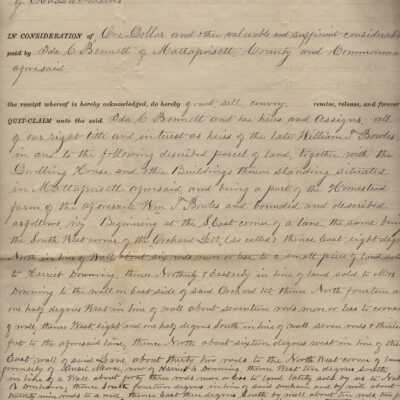 of
IN CONSIDERATION of One Dollar and other valuable and sufficient considerati
paid by Ida C Bennett of Mattapoisett County and Commonwea
aforesaid
the receipt whereof is hereby acknowledged, do hereby grant sell convey remise, release, and forever
QUIT-CLAIM unto the said Ida C Bennett and her heirs and Assigns all
of our right title and interest as heirs of the late William T Bowles
in and to the following described parcel of land, together with the
Dwelling House and other Buildings thereon standing situated
in Mattapoisett aforesaid, and being a part of the Homestead
farm of the aforesaid Wm T Bowles and bounded and described
as follows, viz Beginning at the S East corner of a lane, the same bein
the South West corner of the Orchard Lot, (so called) thence East eight degre
North in line of Wall about six rods more or less to a small piece of land sold
to Harriet Downing, thence Northerly & Easterly in line of land sold to
Downing to the wall on East side of said Orchard lot thence North fourteen a
one half degrees West in line of wall about seventeen rods more or less to corner
of wall, thence West eight and one half degrees South in line of wall seven rods & thirteen
feet to the aforesaid lane, thence North about sixteen degrees west in line of the
East wall of said Lane about thirty two rods to the North West corner of land
formerly of now of Harriet G Downing, thence West ten degrees South
in line of a Wall about forty three rods more or less to land lately sold by us to
thence South fourteen degrees in line of said and of wall about
twenty nine rods to a wall, thence East three degrees South by wall about ten rods